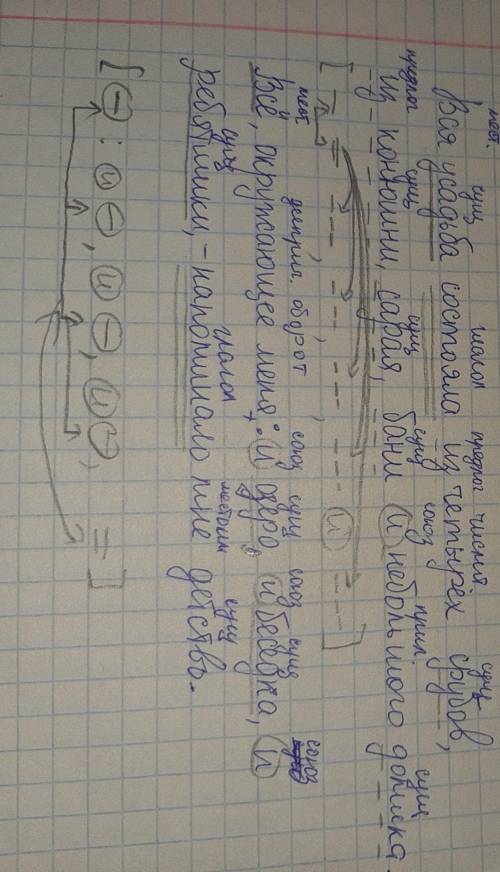 мест. сущ глагол предлог числит. сущ
Вся усадьба состояла из четырёх срубов,
предлог сущ сущ сущ союз прил. сущ
из конюшни, сарая, бани и небольшого домика.
[ – = - - -, - - -, - - -, - - - и - - - ]
мест деприч. оборот союз сущ союз сущ союз
Всё, окружающее меня: и озеро, и беседка, и
сущ глагол местоим сущ
ребятишки, - напоминало мне детство.
[ – : и –, и –, и –, = ]